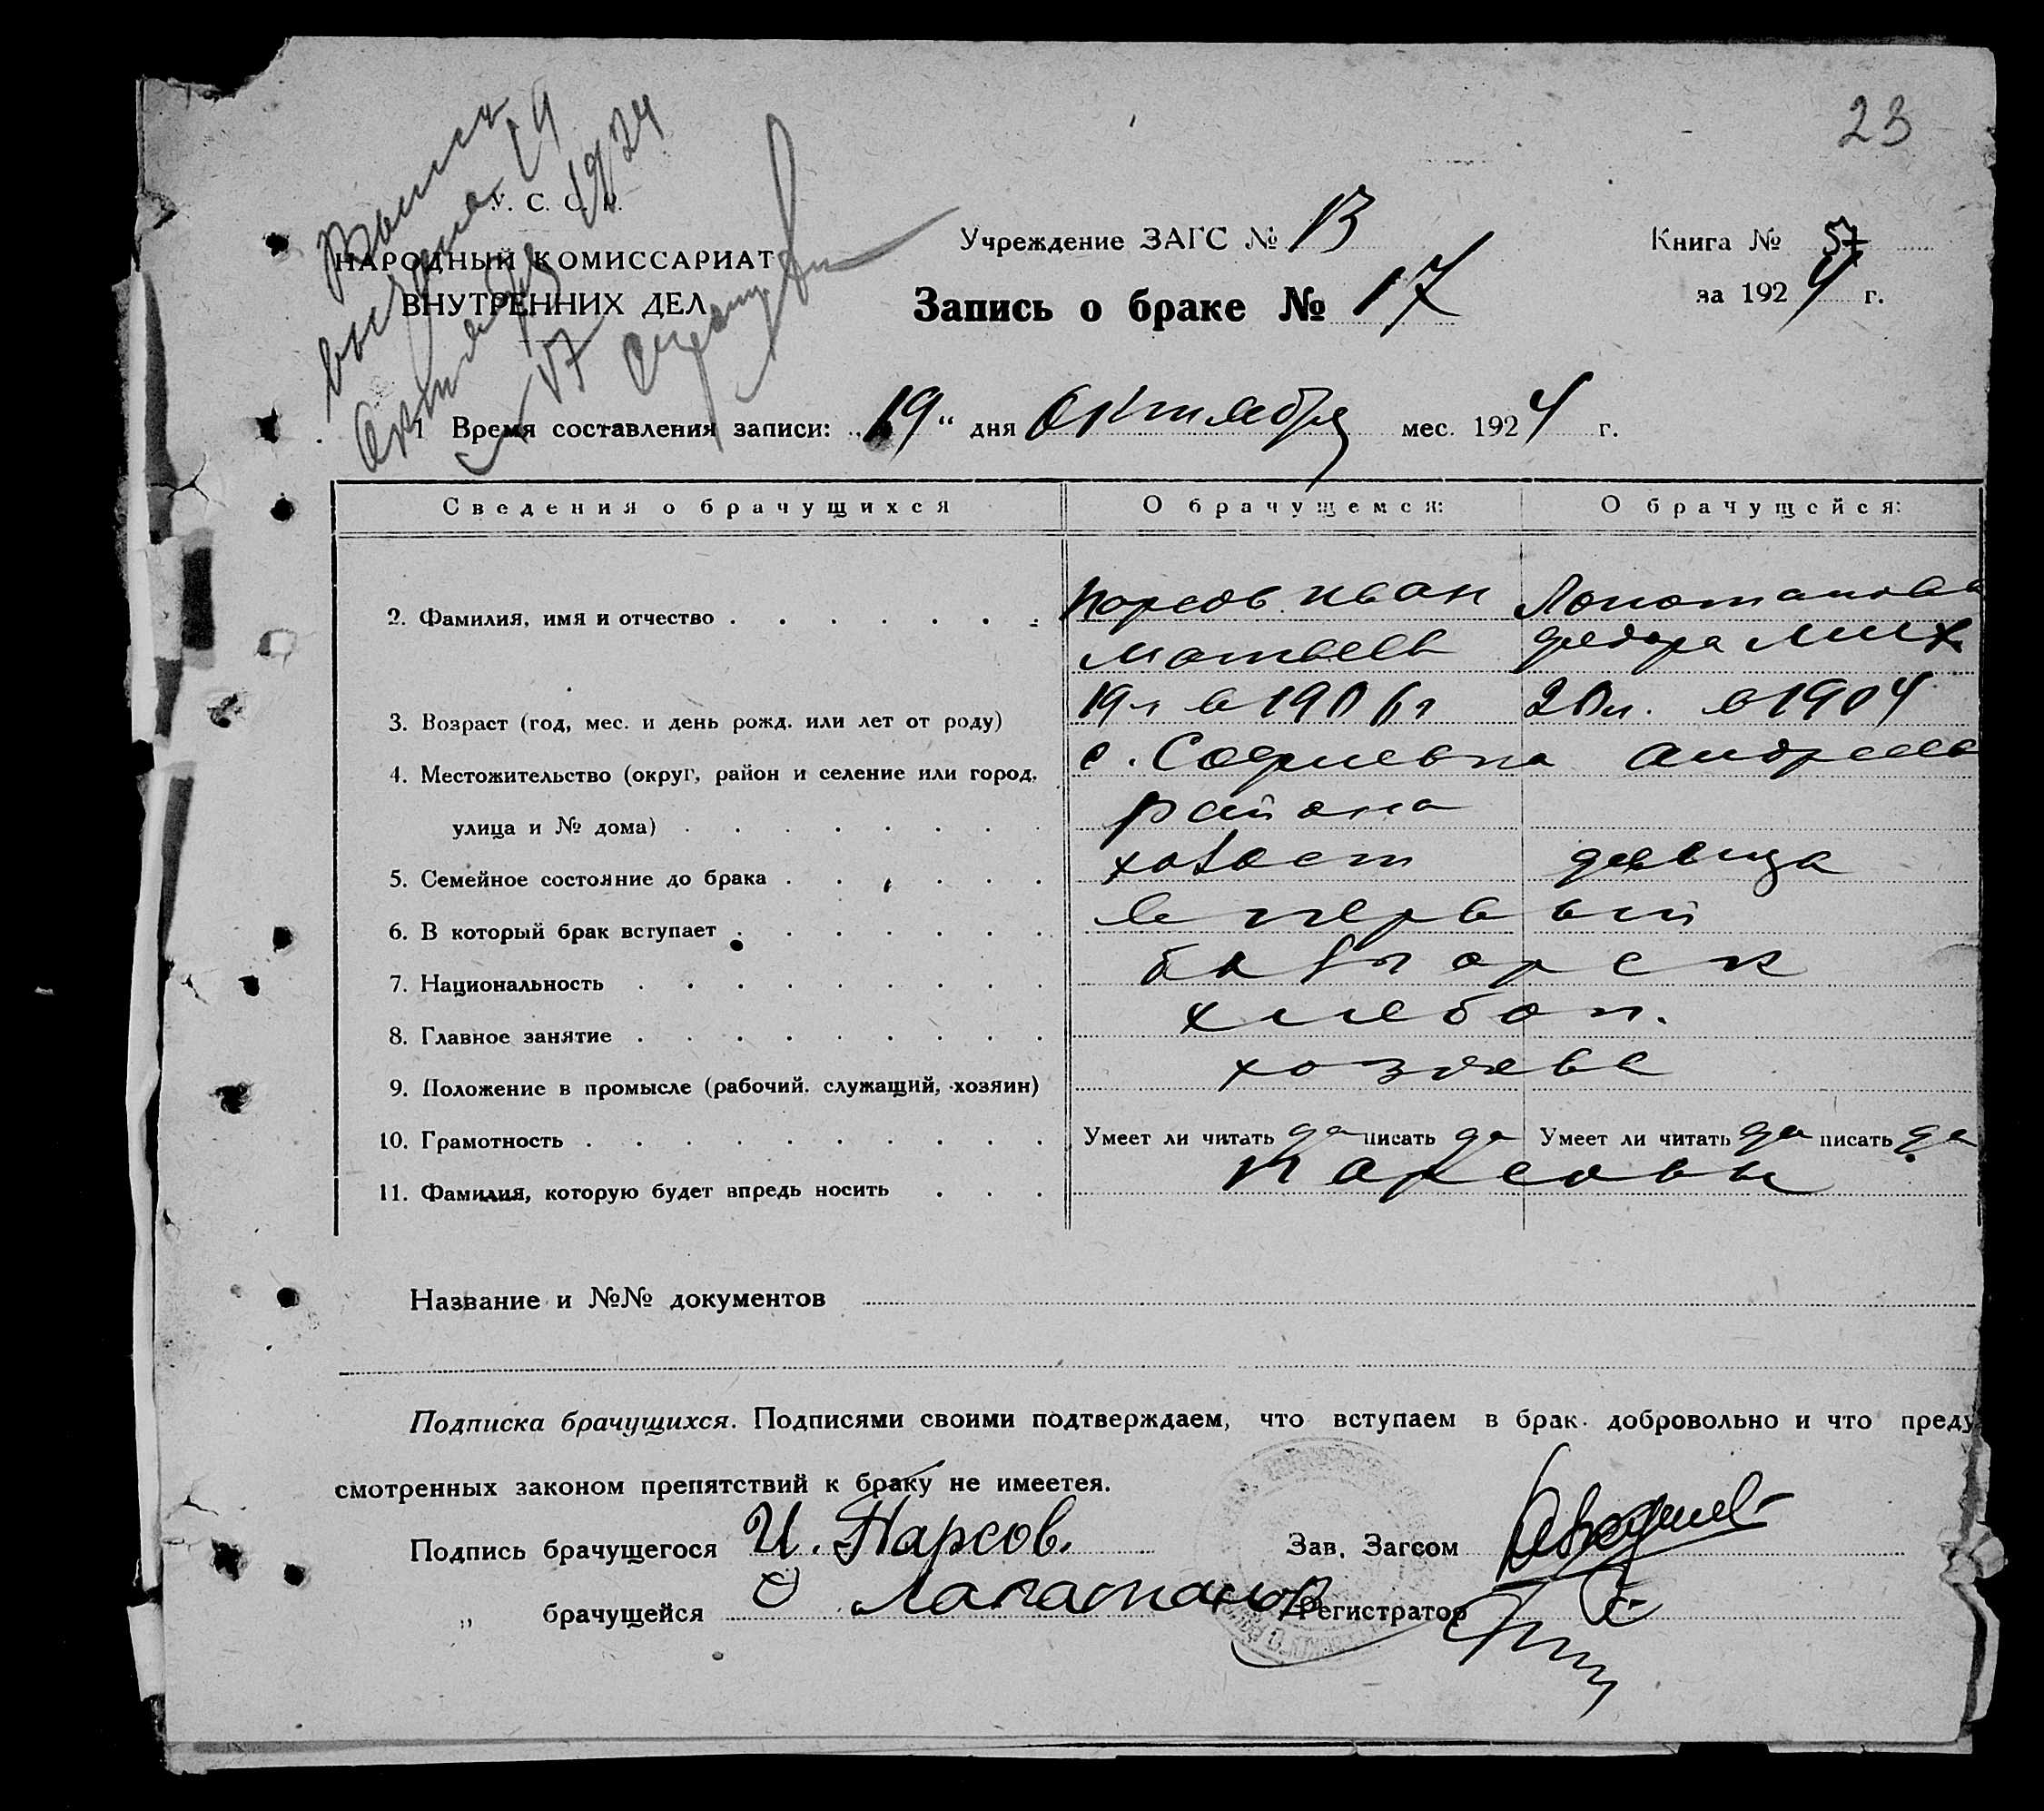 23
Выпись
выдана 19
октября 1924
№ 17
У. С. С. Р.
НАРОДНЫЙ КОМИССАРИАТ
ВНУТРЕННИХ ДЕЛ
Учреждение ЗАГС № 13
Книга № 57
Запись о браке № 17
за 1924 г.
1 Время составления записи: „19“ дня Октября мес. 1924 г.
Сведения о брачущихся О брачущемся: О брачущейся:
2. Фамилия, имя и отчество Нарсов Иван Лопотанова
Матвеев федора Мих
3. Возраст (год, мес. и день рожд. или лет от роду) 19 л в 1906 г 20 л. в 1904
4. Местожительство (округ, район и селение или город, с. Софиевка Андреев
улица и № дома) района
5. Семейное состояние до брака холост девица
6. В который брак вступает в первый
7. Национальность болгарск
8. Главное занятие хлебоп.
9. Положение в промысле (рабочий. служащий, хозяин) хозяева
10. Грамотность Умеет ли читать да писать да Умеет ли читать да писать да
11. Фамилия, которую будет впредь носить Нарсовы
Название и №№ документов
Подписка брачущихся. Подписями своими подтверждаем, что вступаем в брак добровольно и что преду
смотренных законом препятствий к браку не имеетея.
Подпись брачущегося И. Нарсов.
Зав. Загсом
„ брачущейся Лапатанов
Регистратор